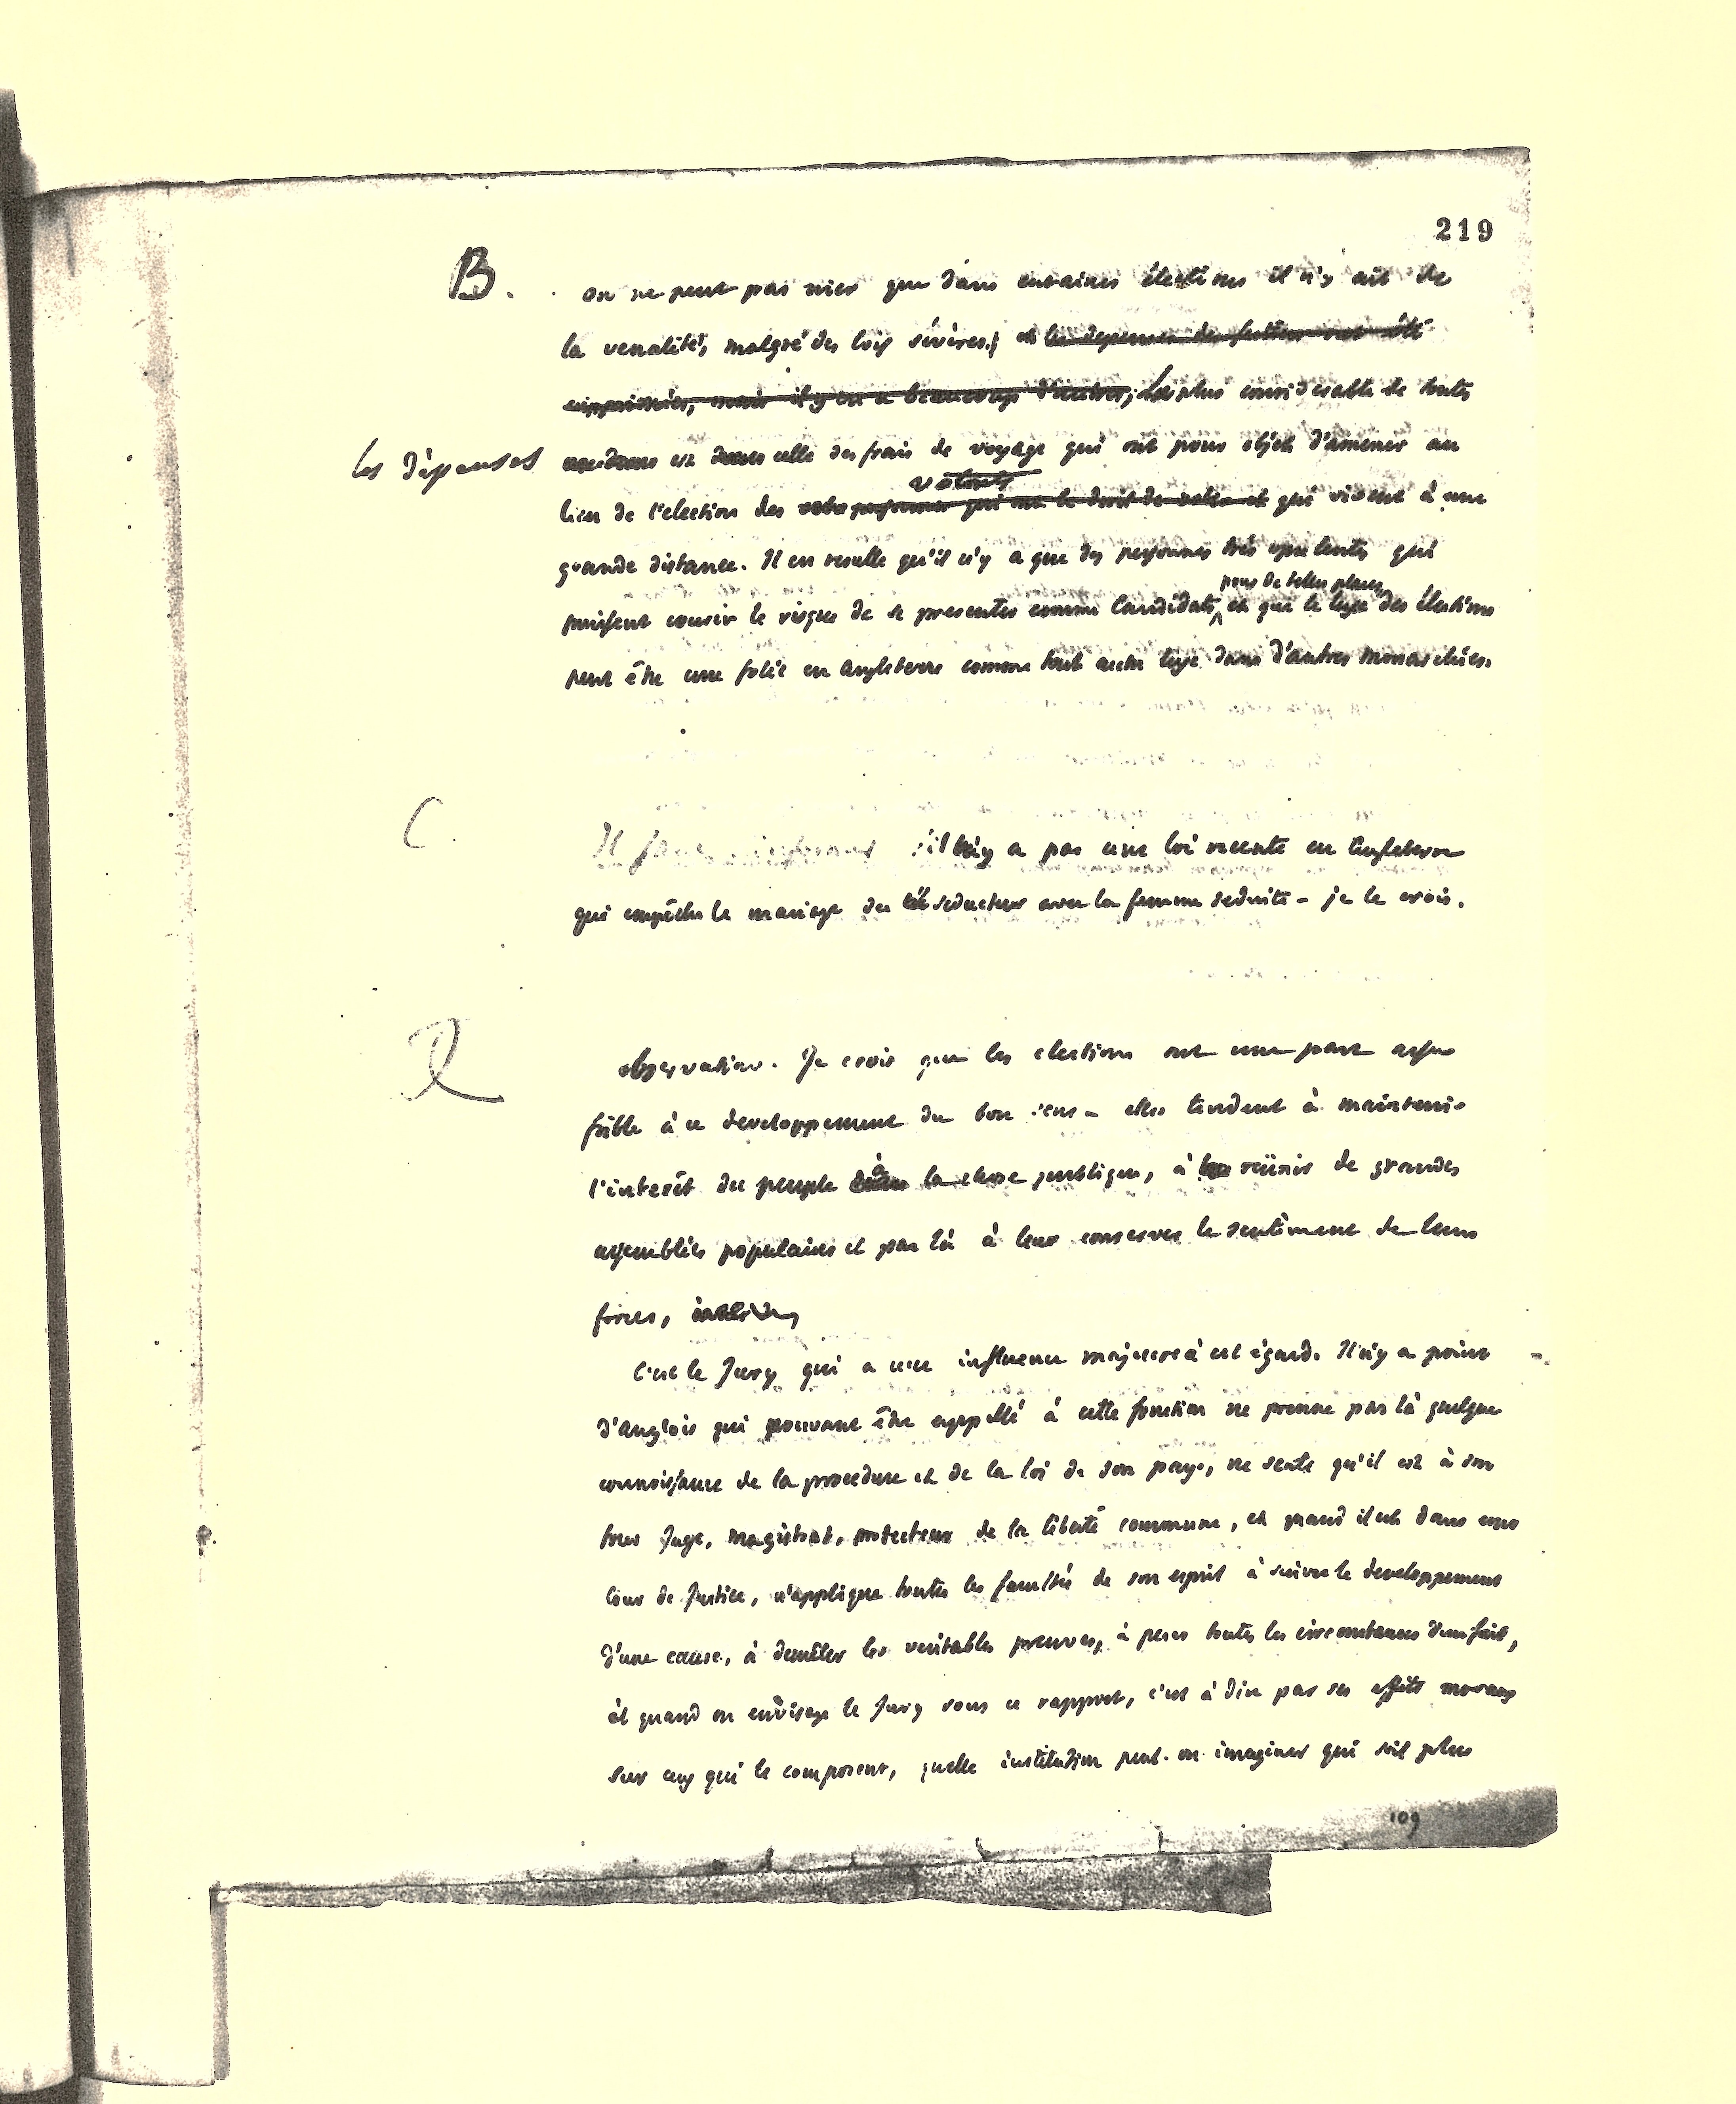 219
B. on ne peut pas nier que dans certaines élections il n'y ait de
la venalité, malgré des lois sévères; et les depenses des festins ont été
supprimées, mais il y en a beaucoup d'autres; La plus considerable de toutes
les dépenses est celle des frais de voyage qui ont pour objet d'amener au
votants
lieu de l'election des personnes qui ont le droit de voter et qui vivent à une
grande distance. Il en resulte qu'il n'y a que des personnes très opulentes qui
pour de telles places
puissent courir le risque de se presenter comme Candidats, et que le luxe des élections
peut être une folie en Angleterre comme tout autre luxe dans d'autres monarchies.
C. Il faut s'il n'y a pas une loi recente en Angleterre
qui empêche le mariage du seducteur avec la femme seduite - je le crois.
D observation. Je crois que les elections ont une part assez
foible à ce developpement du bon sens - elles tendent à maintenir
l'interêt du peuple à la chose publique, à reünir de grandes
assemblées populaires et par là à leur conserver le sentiment de leurs
forces,
C'est le Jury qui a une influence majeure à cet égard. Il n'y a point
d'Anglois qui pouvant être appellé à cette fonction ne prenne par là quelque
connoissance de la procedure et de la loi de son pays, ne sente qu'il est à son
tour Juge, magistrat, protecteur de la liberté commune, et quand il est dans une
Cour de Justice, n'applique toutes les facultés de son esprit à suivre le developpement
d'une cause, à demêler les veritables preuves, à peser toutes les circonstances d'un fait,
et quand on envisage le Jury sous ce rapport, c'est à dire par ses effets moraux
sur ceux qui le composent, quelle institution peut-on imaginer qui soit plus
109